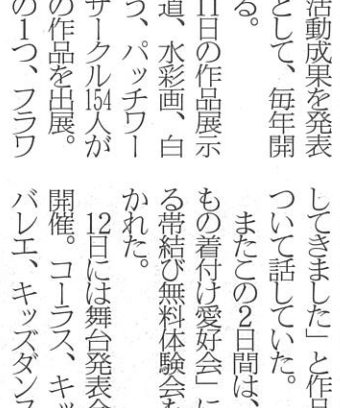 活動成果を発表
として、毎年開
る。
11日の作品展示
道、水彩画、白
つ、パッチワー
サークル154人が
の作品を出展。
の1つ、フラワ
してきました」と作品
ついて話していた。
またこの2日間は、
もの着付け愛好会」に
る帯結び無料体験会も
かれた。
12日には舞台発表会
開催。コーラス、キッ
バレエ、キッズダンス